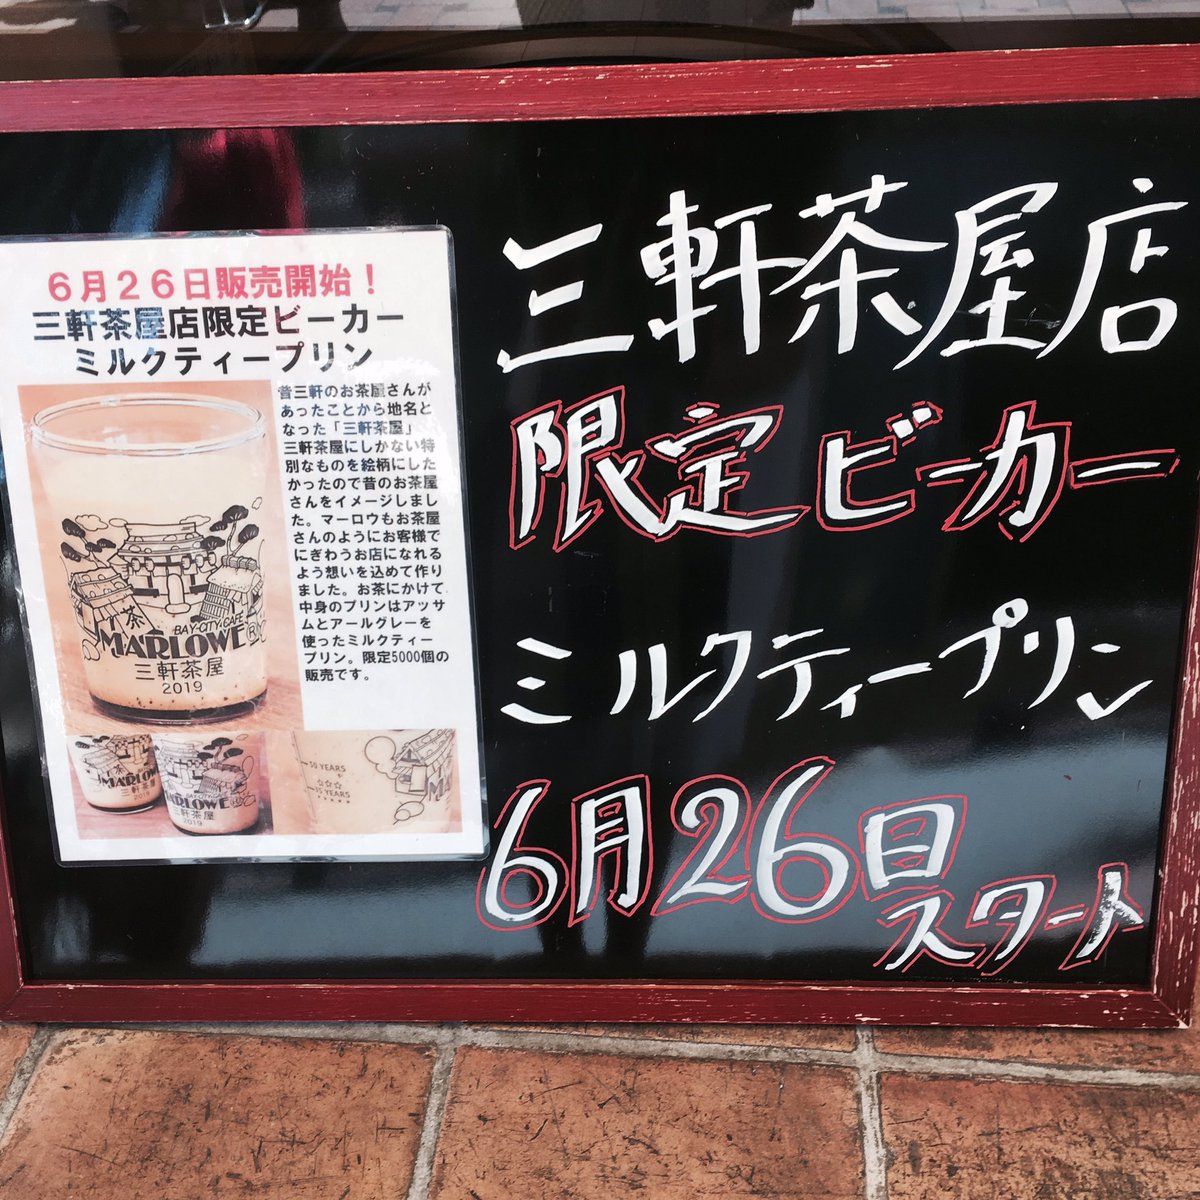 6月26日販売開始！
三軒茶屋店限定ビーカー
ミルクティープリン
昔三軒のお茶屋さんが
あったことから地名と
なった「三軒茶屋」
三軒茶屋にしかない特
別なものを絵柄にした
かったので昔のお茶屋
さんをイメージしまし
た。マーロウもお茶屋
さんのようにお客様で
にぎわうお店になれる
よう想いを込めて作り
ました。お茶にかけて
中身のプリンはアッサ
ムとアールグレーを
使ったミルクティー
プリン。限定5000個の
販売です。
茶
BAY-CITY-CAFE
MARLOWE®
三軒茶屋
2019
MARLOWE
三軒茶屋
2019
MARLOWE®
三軒茶屋
2019
50 YEARS
35 YEARS
三軒茶屋店
限定ビーカー
ミルクティープリン
6月26日
スタート